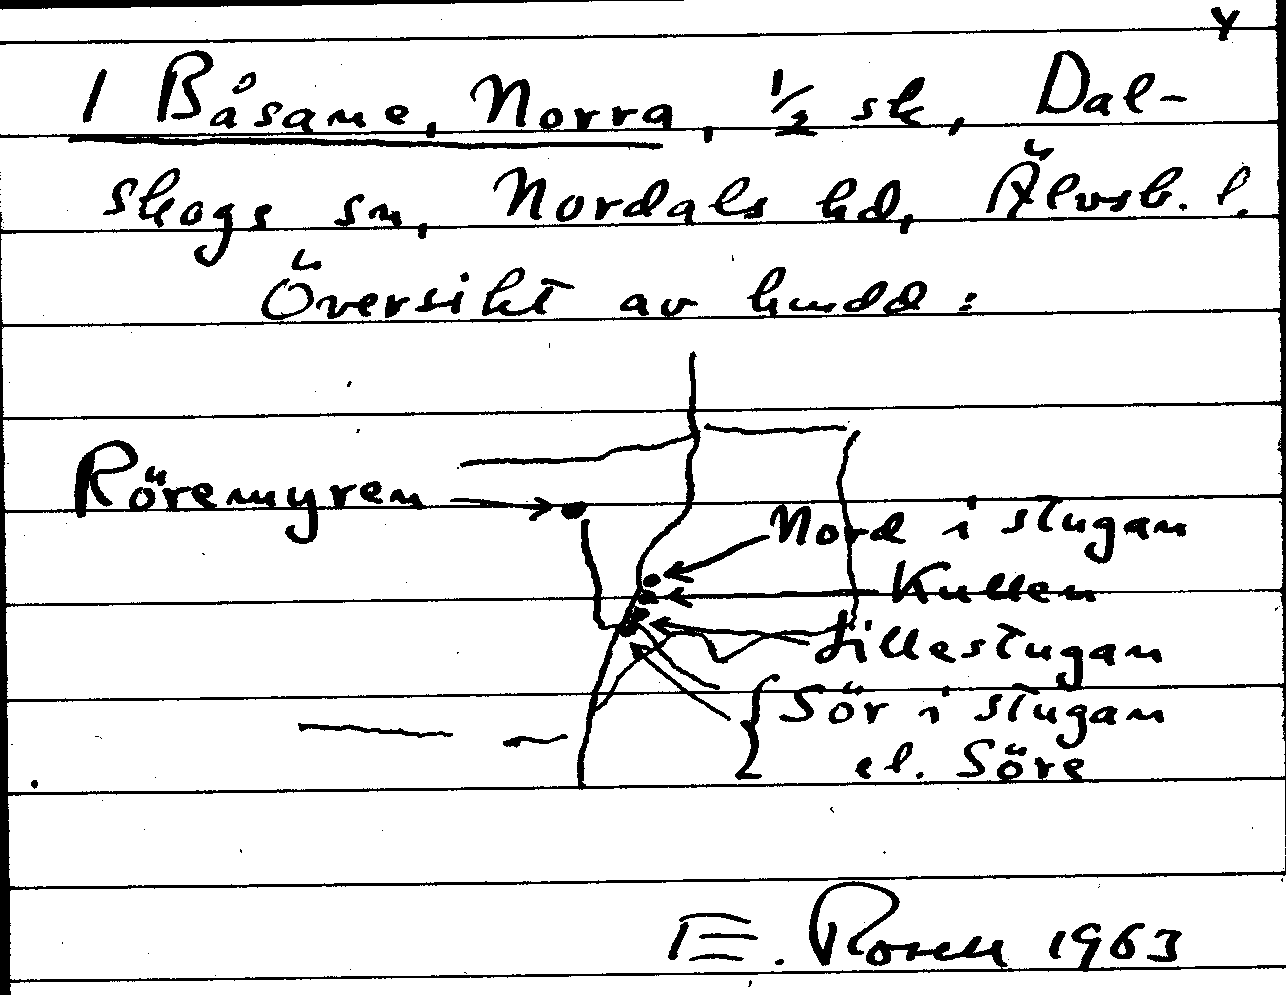 Y
1 Båsane, Norra, 1/2 sk, Dal-
skogs sn, Nordals hd, Älvsb. l.
Översikt av hmdd:
Röremyren
Nord i stugan
Kullen
Lillestugan
Sör i stugan
el. Söre
E. Rosell 1963